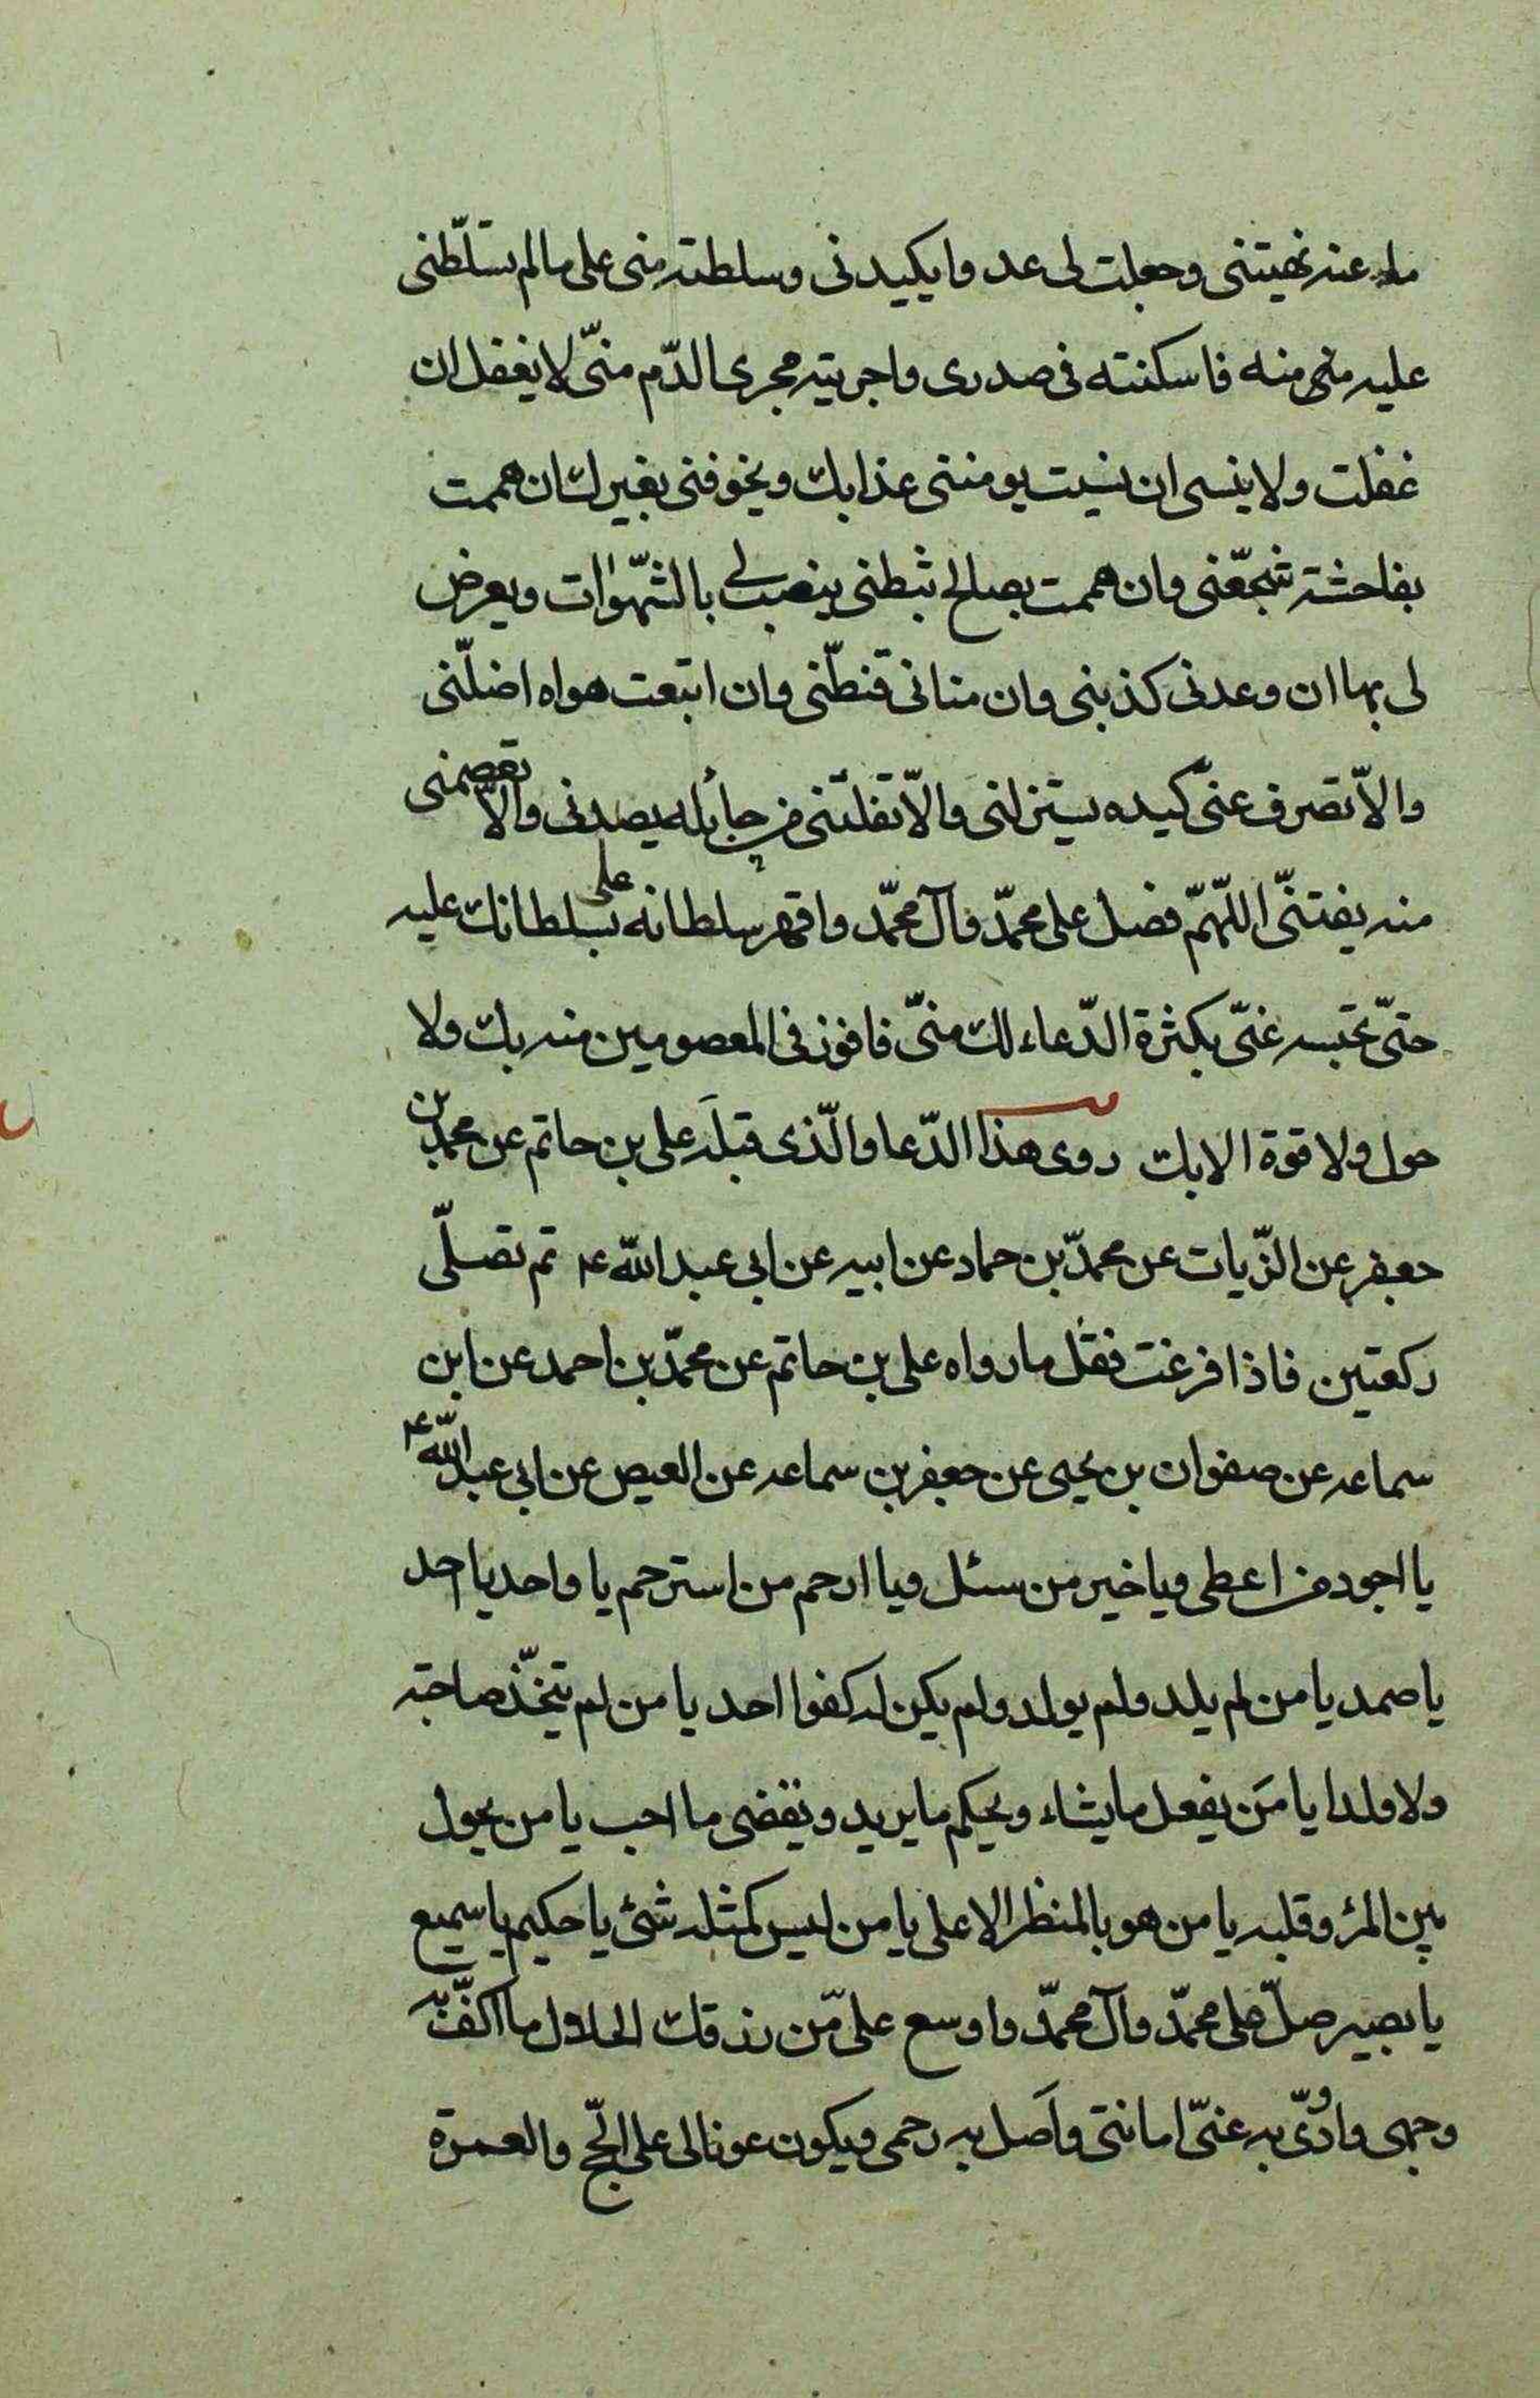 ما عنه نهيتنى وجعلت لى عدوا يكيدنى وسلطته منى على مالم تسلّطنى
عليه منى منه فاسكنته فى صدرى واجريته مجرى الدّم منّى لا يغفل ان
غفلت ولا ينسى ان نسيت يومننى عذابك ويخوفنى بغيرك ان هممت
بفاحشة شجّعنى وان هممت بصالح ثبطنى ينصب لى بالشّهوات ويعرض
لى بها ان وعدنى كذبنى وان منانى قنطّنى وان اتبعت هواه اضلّنى
والاّ تصرف عنّى كيده يستزلنى والاّ تفلتنى من حبائله يصدنى والاّ تعصمنى
منه يفتنّى اللّهمّ فصل على محمّد وآل محمّد واقهر سلطانه على بسلطانك عليه
حتّى تحبسه عنّى بكثرة الدّعاء لك منّى فافوز فى المعصومين منه بك ولا
حول ولا قوة الا بك روى هذا الدّعا والّذى قبله على بن حاتم عن محمد بن
جعفر عن الزّيات عن محمّد بن حماد عن ابيه عن ابى عبد الله ع ثم تصلّى
ركعتين فاذا فرغت فقل ما رواه على بن حاتم عن محمّد بن احمد عن ابن
سماعه عن صفوان بن يحيى عن جعفر بن سماعه عن العيص عن ابى عبد الله ع
يا اجود من اعطى ويا خير من سئل ويا ارحم من استرحم يا واحد يا احد
يا صمد يا من لم يلد ولم يولد ولم يكن له كفوا احد يا من لم يتخّذ صاحبة
ولا ولدا يا مَن يفعل ما يشاء ويحيكم ما يريد ويقضى ما احب يا من يحول
بين المرء وقلبه يا من هو بالمنظر الاعلى يا من ليس كمثله شئ يا حكيم يا سميع
يا بصير صلّ على محمّد وآل محمّد واوسع علىّ من رزقك الحلال ما اكفّ به
وجهى واؤدّى به عنّى امانتى وآصل به رحمى ويكون عونا لى على الحّج والعمرة